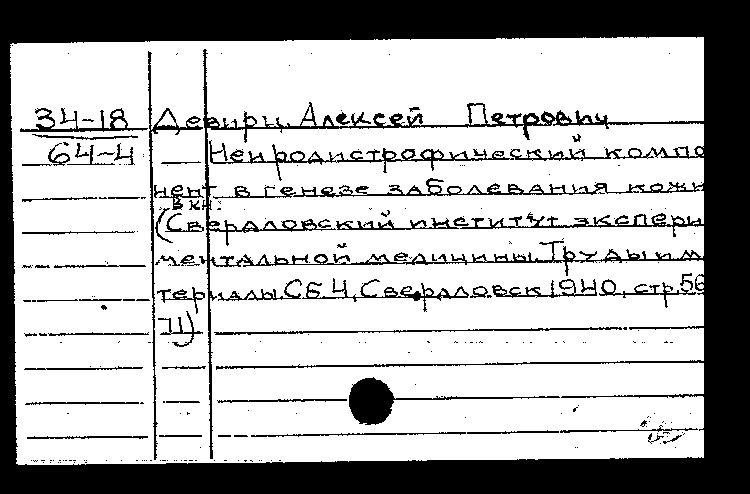 34-18 Девирц, Алексей Петрович
64-4 Нейродистрофический компо
нент в генезе заболевания кожи
в кн.:
(Свердловский институт экспери
ментальной медицины. Труды и ма
териалы. Сб 4, Свердловск 1940, стр. 56
71)